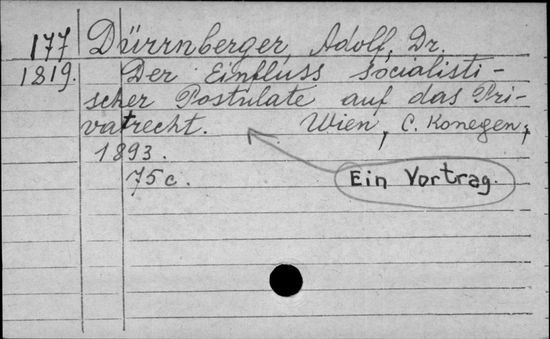 177 Dürrnberger, Adolf, Dr.
1819. Der Einfluss socialisti-
scher Postulate auf das Pri-
vatrecht. Wien, C. Konegen,
1893.
75c. Ein Vortrag.